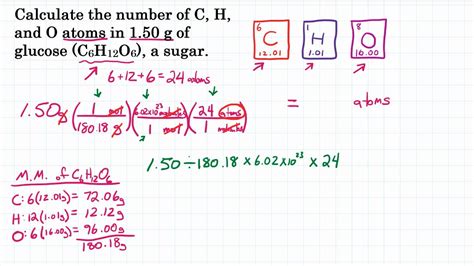 Calculate the number of C, H,
and O atoms in 1.50 g of
glucose (C₆H₁₂O₆), a sugar.
6 C 12.01
1 H 1.01
8 O 16.00
6+12+6=24 atoms
1.50g (1 mol / 180.18 g) (6.02x10²³ molecules / 1 mol) (24 atoms / 1 molecules) = atoms
1.50 ÷ 180.18 x 6.02x10²³ x 24
M.M. of C₆H₁₂O₆
C: 6(12.01g) = 72.06g
H: 12(1.01g) = 12.12g
O: 6(16.00g) = 96.00g
180.18g